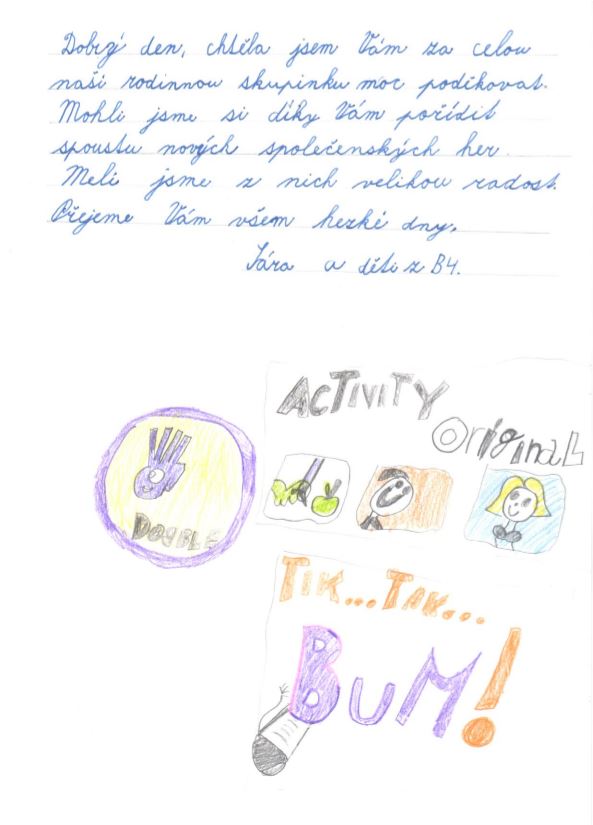 Dobrý den, chtěla jsem Vám za celou
naši rodinnou skupinku moc poděkovat.
Mohli jsme si díky Vám pořídit
spoustu nových společenských her.
Meli jsme z nich velikou radost.
Přejeme Vám všem hezké dny.
Sára a děti z B4.
ACTIVITY
OriginaL
DOBBLE
TIK...TAK...
BUM!